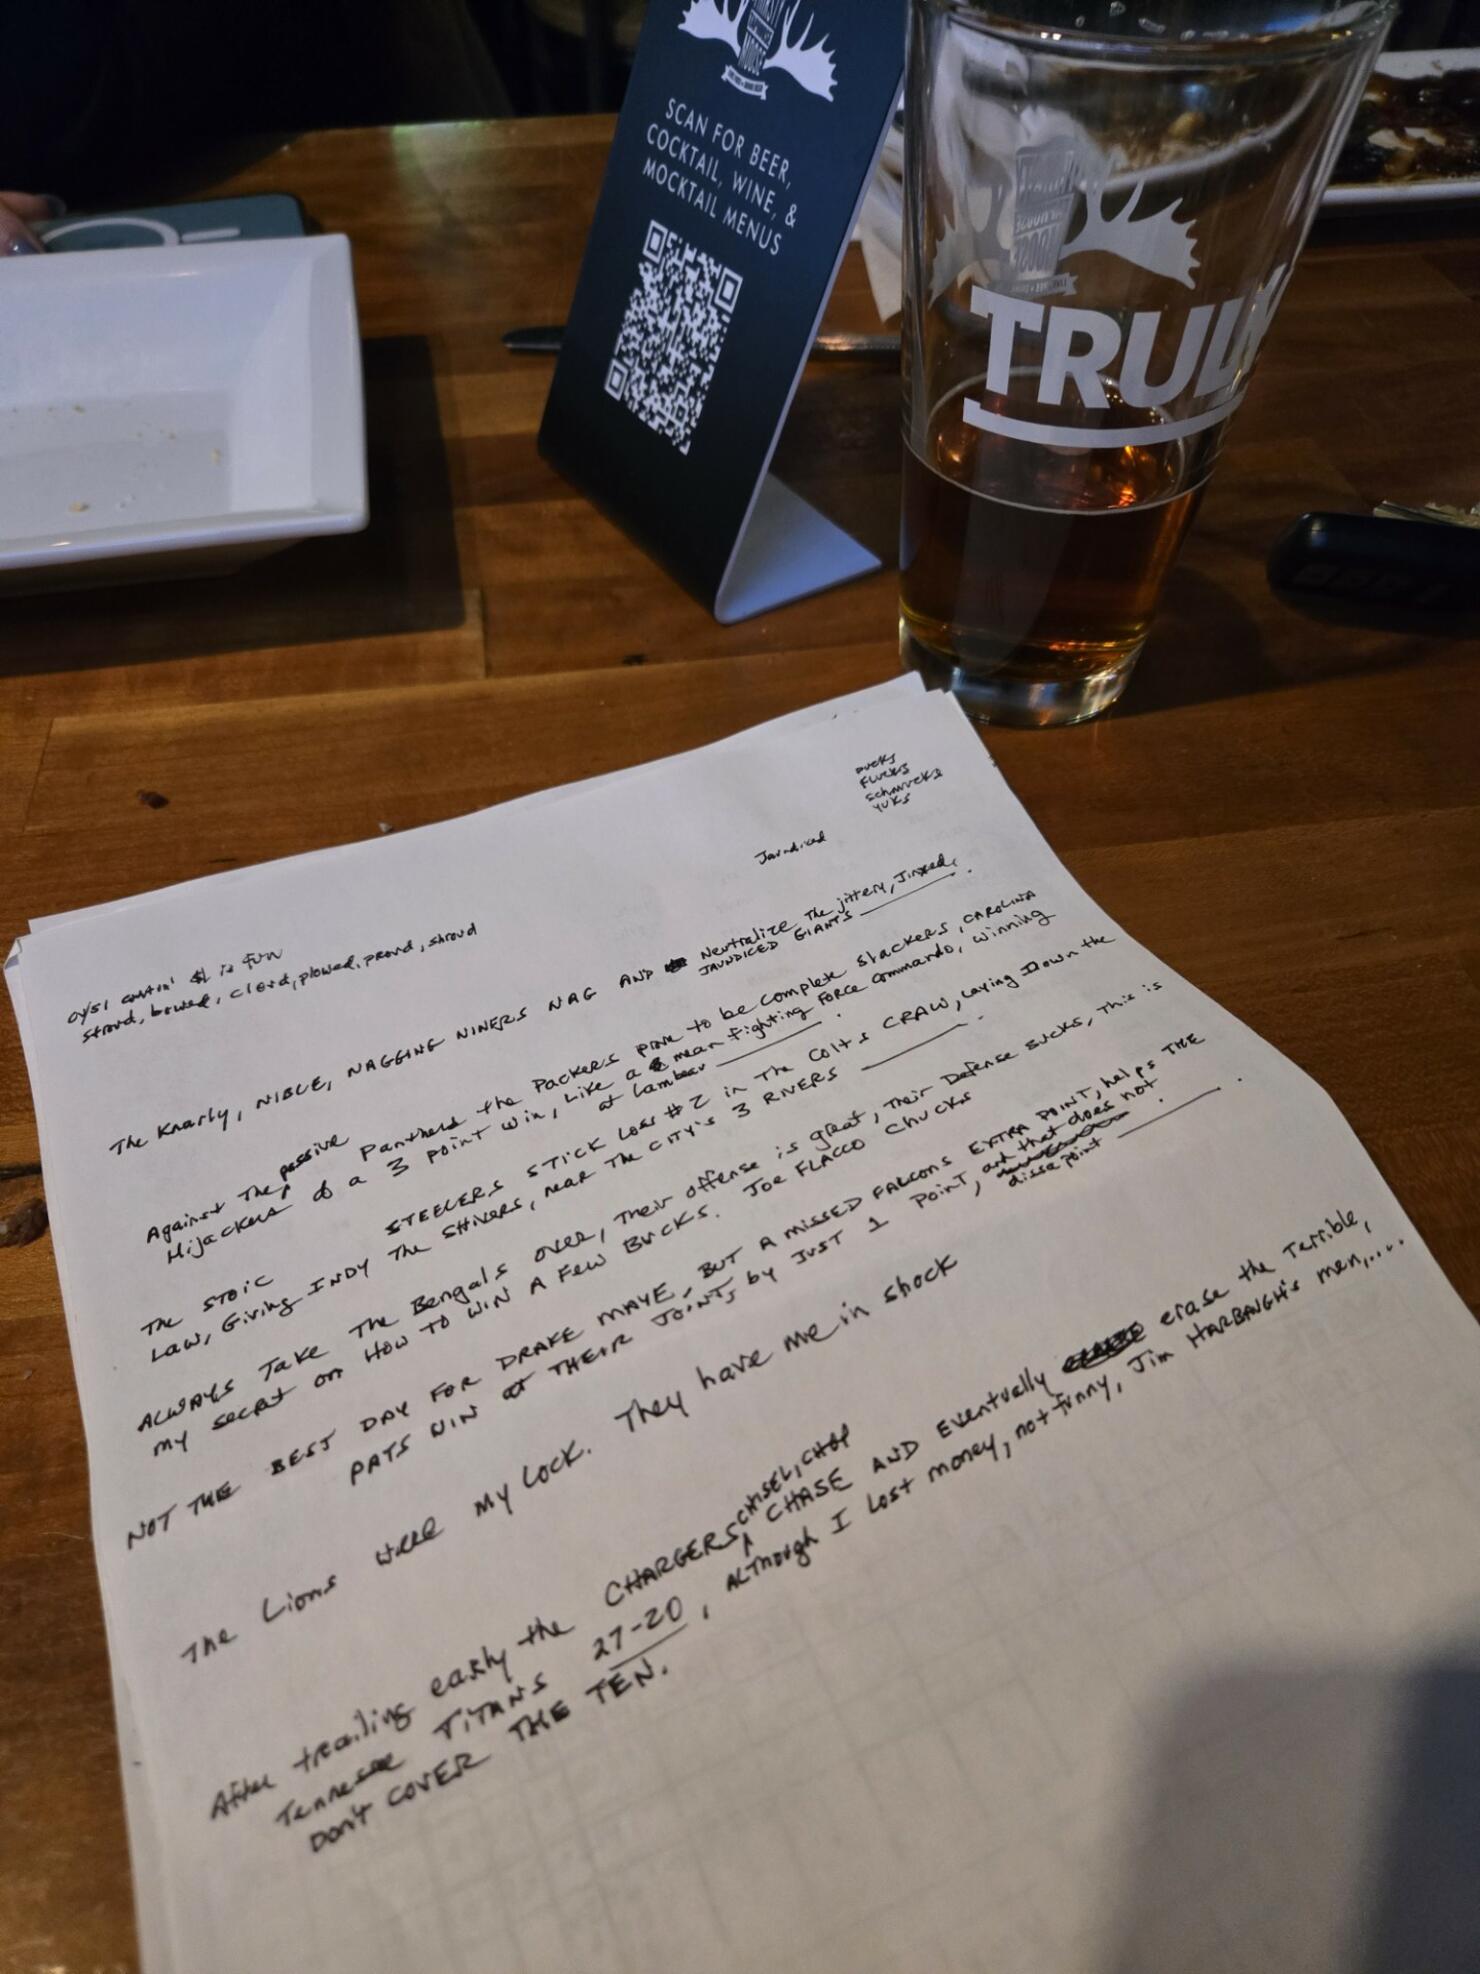 THIRSTY
MOOSE
SCAN FOR BEER,
COCKTAIL, WINE, &
MOCKTAIL MENUS
MOOSE
TRULY
DUCKS
FLUCKS
SCHMUCKS
YUKS
Jaundiced
is fun
stroud, bowed, cloud, plowed, proud, shroud
The Knarly, NIBLE, NAGGING NINERS NAG AND Neutralize The jittery, Jinxed,
JAUNDICED GIANTS
Against The passive Packers prove to be complete slackers, CAROLINA
Panthers the
Hijackers of a 3 point win, Like a mean fighting Force commando, winning
at Lambeau
The STOIC STEELERS STICK Loss #2 in The Colts CRAW, Laying Down the
Law, Giving INDY The SHIVERS, near The CITY'S 3 RIVERS
ALWAYS Take The Bengals over, Their offense is great, Their Defense sucks, This is
my secret on HOW TO WIN A Few BUCKS. Joe FLACCO CHUCKS
NOT THE BEST DAY FOR DRAKE MAYE, BUT A MISSED FALCONS EXTRA POINT, helps THE
PATS WIN at THEIR JOINT, by JUST 1 POINT, and that does not
dissapoint
The Lions were my Lock. They have me in shock
CHISEL, CHOP
After trailing early the CHARGERS CHASE AND Eventually erase the Terrible,
Tennessee TITANS 27-20, ALThough I Lost money, not funny, Jim HARBAUGH'S men,....
Don't COVER THE TEN.